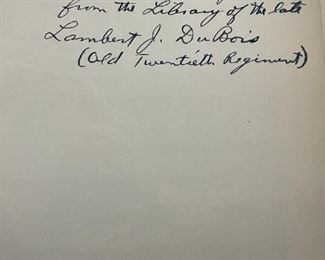 from the Library of the late
Lambert J. DuBois
(Old Twentieth Regiment)